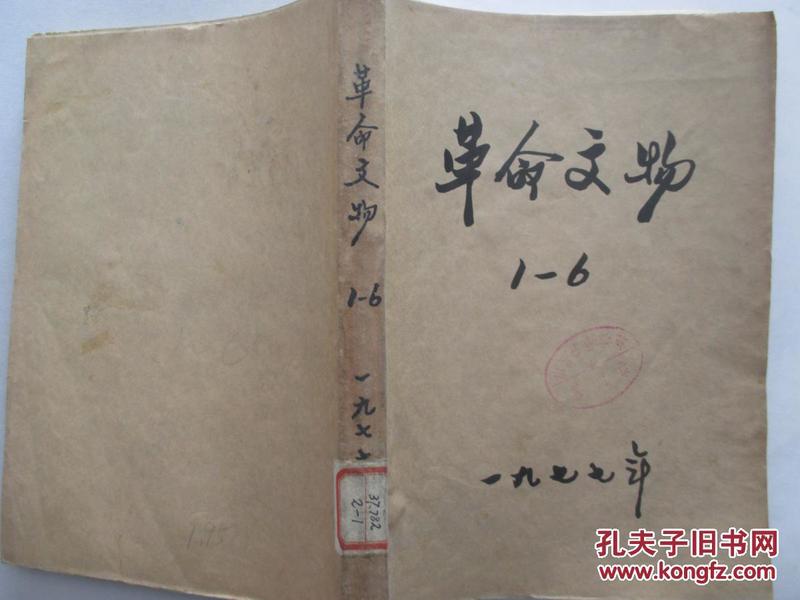 革命文物
1-6
一九七七年
革命文物
1-6
一九七七
37.782
2-1
1.95
孔夫子旧书网
www.kongfz.com